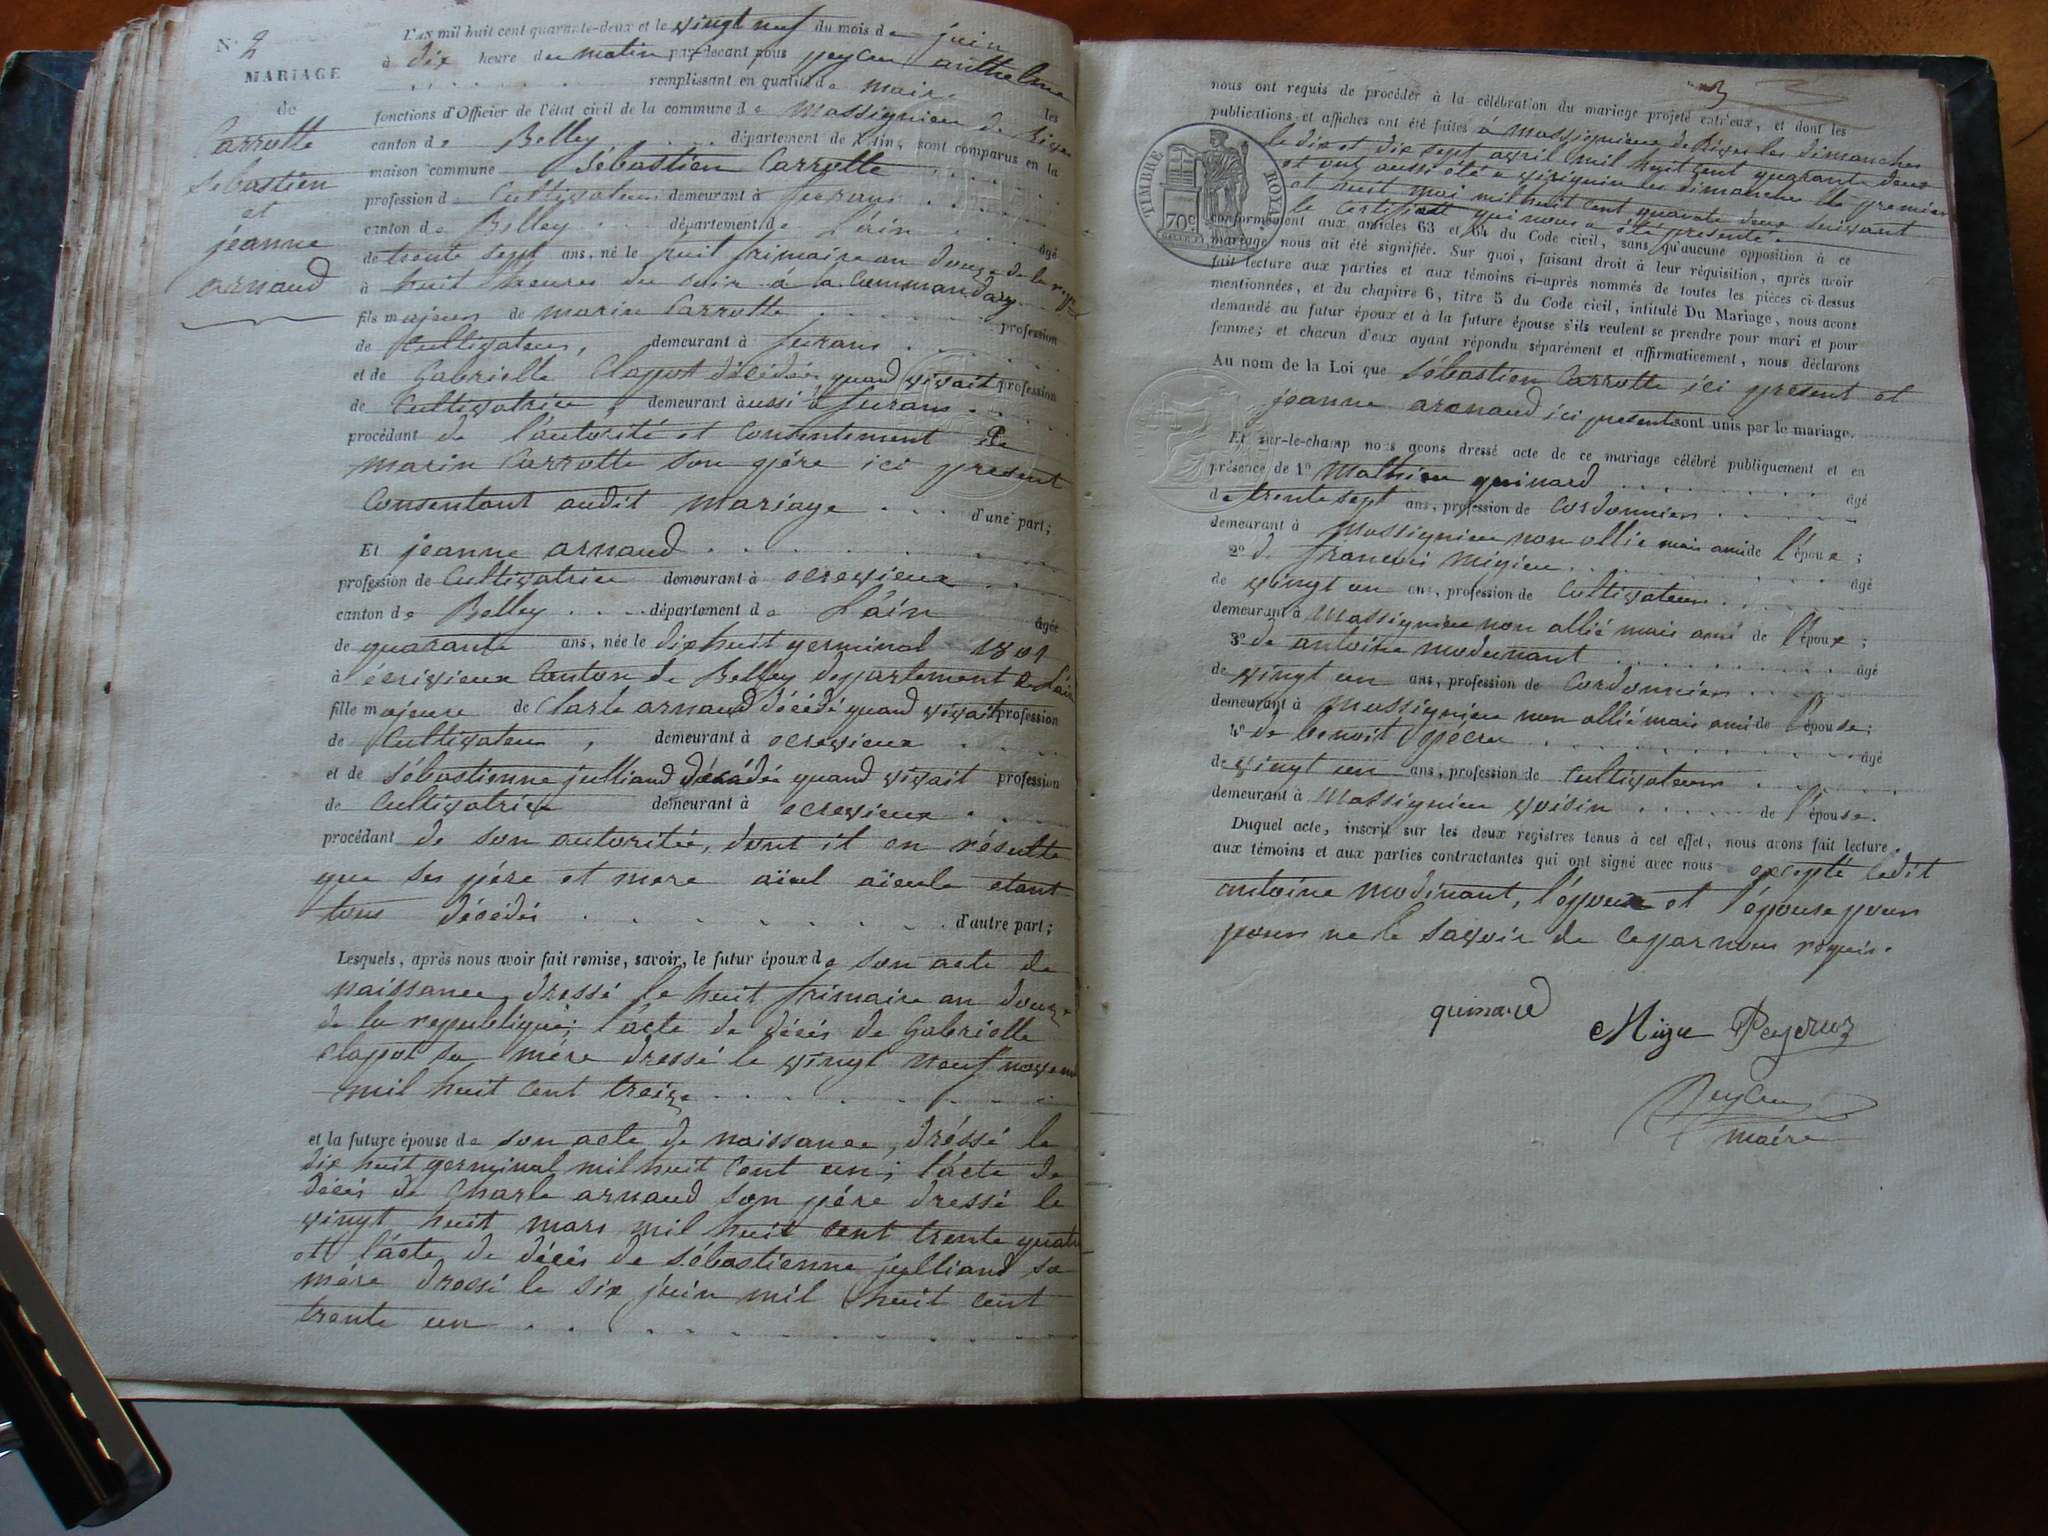 N° 2
MARIAGE
de
Carrotte
Sébastien
et
jeanne
arnaud
L'AN mil huit cent quarante-deux et le vingt neuf du mois de juin
à dix heure du matin par devant nous peycru anthelme
remplissant en qualité de maire les
fonctions d'Officier de l'état civil de la commune de Massignieu de Rives
canton de Belley département de l'ain, sont comparus en la
maison commune Sébastien Carrotte
profession de Cultivateur demeurant à
canton de Belley département de L'ain âgé
de trente sept ans, né le huit frimaire an douze de la
à huit heures du soir à la Commandery
fils majeur de marin Carrotte profession
de Cultivateur, demeurant à
et de Gabrielle Clapot décédée quand vivait profession
de Cultivatrice, demeurant aussi à
procédant de l'autorité et Consentement De
marin Carrotte son père ici present
Consentant audit mariage d'une part;
Et jeanne arnaud
profession de Cultivatrice demeurant à ecrevieux
canton de Belley département de L'ain âgée
de quarante ans, née le dix huit germinal 1801
à écrivieux Canton de Belley departement de l'ain
fille majeure de Charle arnaud décédé quand vivait profession
de Cultivateur, demeurant à ecrevieux
et de Sébastienne julliand décédée quand vivait profession
de Cultivatrice demeurant à ecrevieux
procédant de son autoritée, dont il en résulte
que ses père et mere aïeul aïeule etant
tous décédés d'autre part;
Lesquels, après nous avoir fait remise, savoir, le futur époux de son acte de
naissance, dressé le huit frimaire an douze
de la republique; l'acte de décés de Gabrielle
Clapot sa mére dressé le vingt neuf
mil huit cent treize
et la future épouse de son acte de naissance, dréssé le
dix huit germinal mil huit Cent un; l'acte de
décés de Charle arnaud son pére dressé le
vingt huit mars mil huit cent trente quatre
et l'acte de décés de Sébastienne julliand sa
mére dressé le six juin mil huit cent
trente un
3
nous ont requis de procéder à la célébration du mariage projeté entr'eux, et dont les
publications et affiches ont été faites à Massignieu de Rives les dimanches
le dix et dix sept avril mil huit cent quarante deux
et ont aussi été a virignin les dimanches le premier
et huit mai mil huit cent quarante deux suivant
le certificat qui nous a été présenté
TIMBRE ROYAL
70c
conformément aux articles 63 et 64 du Code civil, sans qu'aucune opposition à ce
mariage nous ait été signifiée. Sur quoi, faisant droit à leur réquisition, après avoir
fait lecture aux parties et aux témoins ci-après nommés de toutes les pièces ci-dessus
mentionnées, et du chapitre 6, titre 5 du Code civil, intitulé Du Mariage, nous avons
demandé au futur époux et à la future épouse s'ils veulent se prendre pour mari et pour
femme; et chacun d'eux ayant répondu séparément et affirmativement, nous déclarons
Au nom de la Loi que Sébastien Carrotte ici present et
jeanne arenaud ici presente sont unis par le mariage.
Et sur-le-champ nous avons dressé acte de ce mariage célébré publiquement et en
présence de 1° Mathieu quinard âgé
de trente sept ans, profession de Cordonnier
demeurant à Massignieu non allié mais ami de l'époux;
2° de françois migieu âgé
de vingt un ans, profession de Cultivateur
demeurant à Massignieu non allié mais ami de l'époux;
3° de antoine modunant âgé
de vingt un ans, profession de Cordonnier
demeurant à Massignieu non allié mais ami de l'épouse;
4° de benoit âgé
de vingt un ans, profession de Cultivateur
demeurant à Massignieu voisin de l'épouse.
Duquel acte, inscrit sur les deux registres tenus à cet effet, nous avons fait lecture
aux témoins et aux parties contractantes qui ont signé avec nous excepté ledit
antoine modinant, l'époux et l'épouse pour
pour ne le savoir de ce par nous requis.
quinard
Migu Peyeruz
peycru
maire